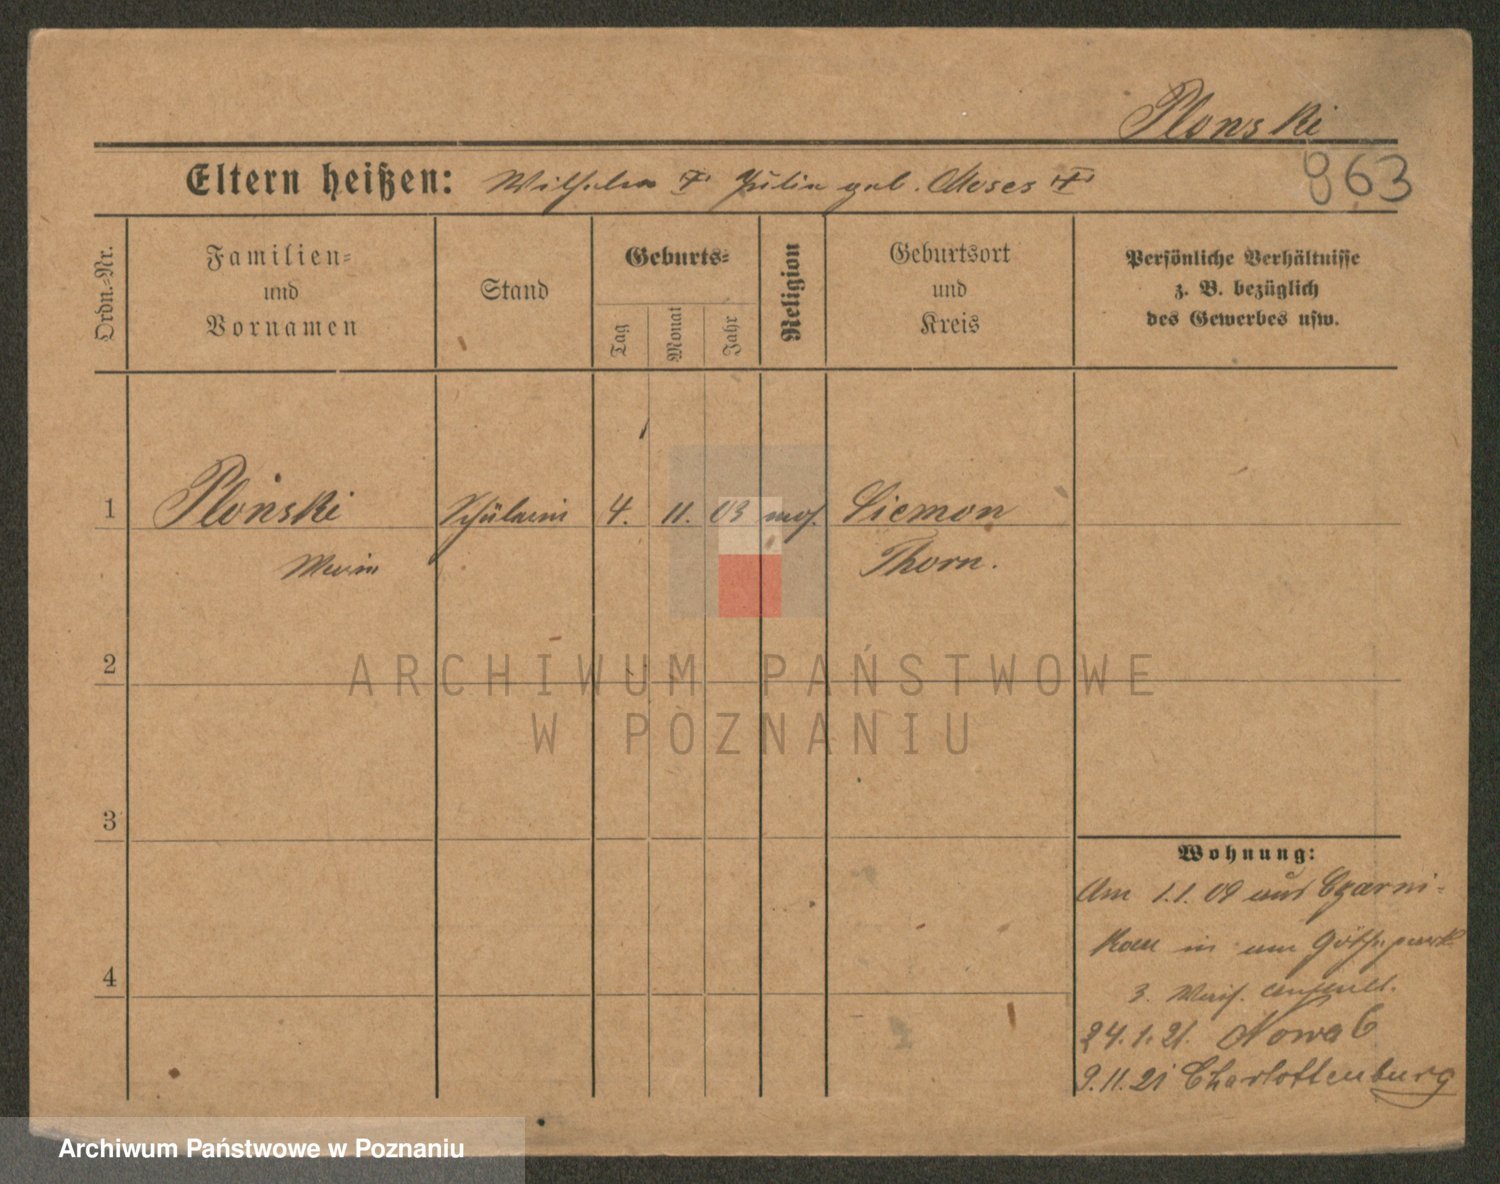 Plonski
Eltern heißen: Wilhelm † Julie geb. Moses †
863
Ordn.=Nr.
Familien=
und
Vornamen
Stand
Geburts=
Tag
Monat
Jahr
Religion
Geburtsort
und
Kreis
Persönliche Verhältnisse
z. B. bezüglich
des Gewerbes usw.
1 Plonski Schülerin 4. 11. 03 mos. Siemon
Thorn.
2
3
4
Wohnung:
Am 1.1.09 aus Czarni-
kau in am Göthepark
3. Wais.
24.1.21. Nowa 6
9.11.21 Charlottenburg
ARCHIWUM PAŃSTWOWE
W POZNANIU
Archiwum Państwowe w Poznaniu